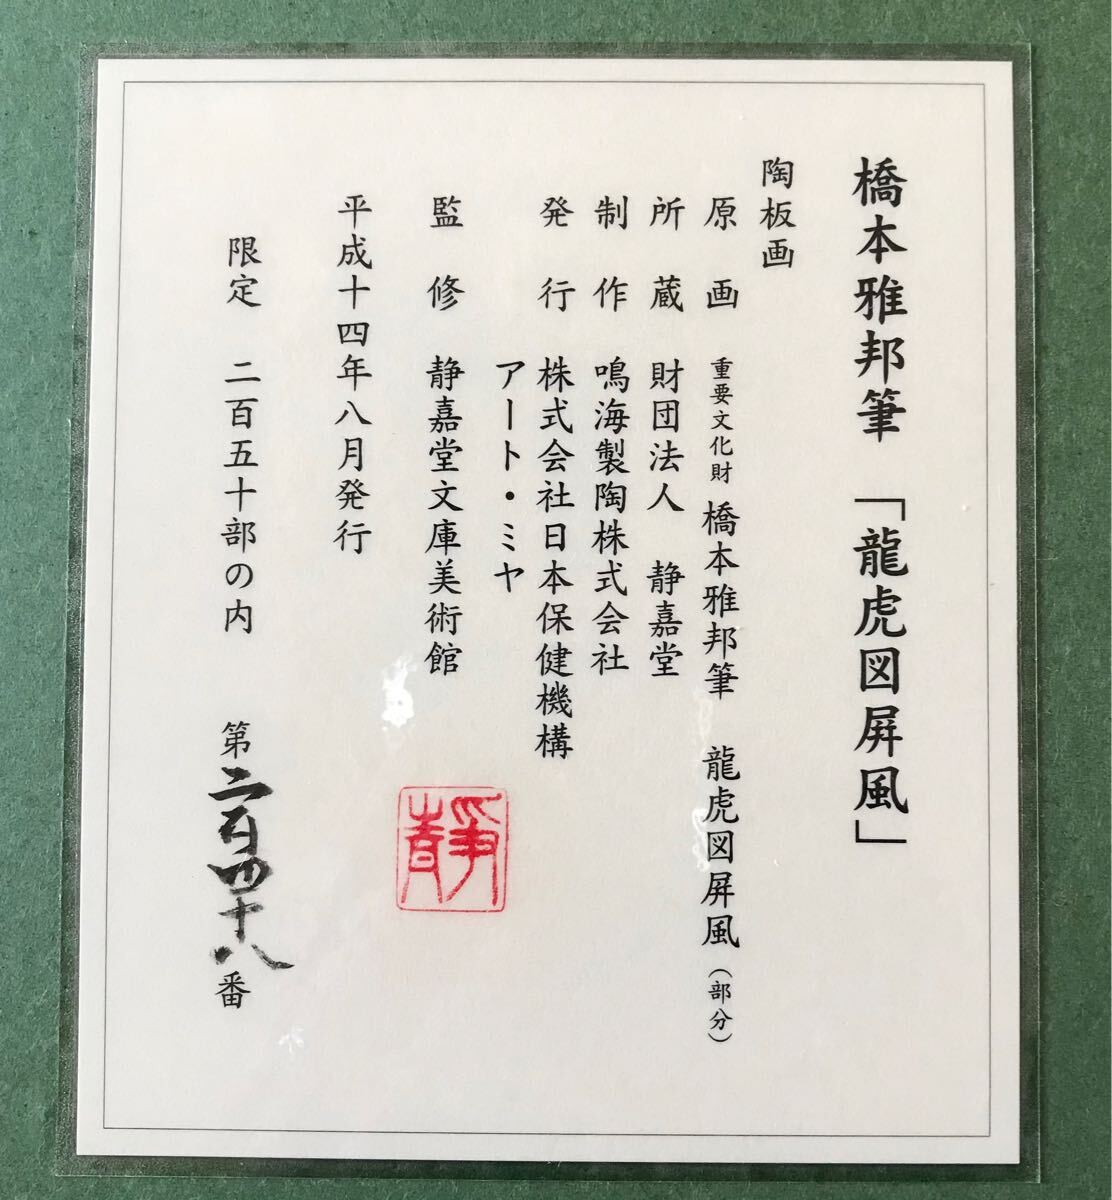 橋本雅邦筆 「龍虎図屏風」
陶板画
原画 重要文化財 橋本雅邦筆 龍虎図屏風（部分）
所蔵 財団法人 静嘉堂
制作 鳴海製陶株式会社
発行 株式会社日本保健機構
アート・ミヤ
監修 静嘉堂文庫美術館
静
平成十四年八月発行
限定 二百五十部の内 第二百四十八番